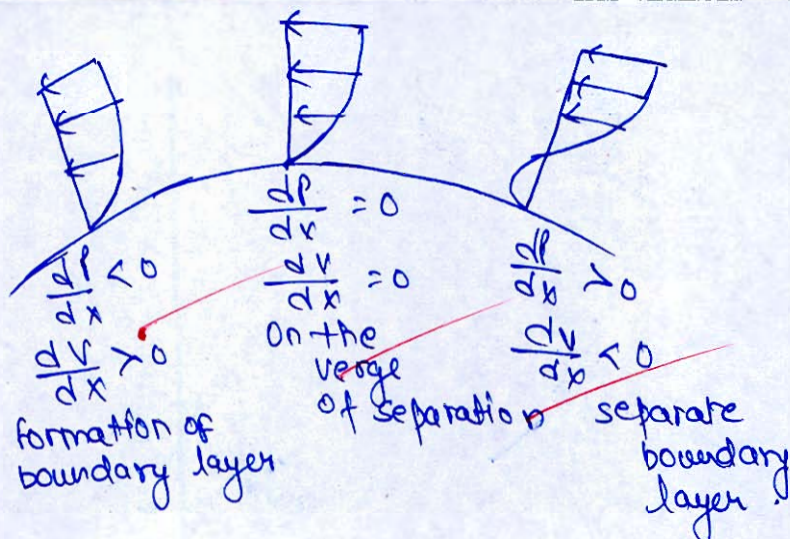 dP/dx < 0
dV/dx > 0
formation of
boundary layer
dP/dx = 0
dV/dx = 0
On the
verge
of separation
dP/dx > 0
dV/dx < 0
separate
boundary
layer.